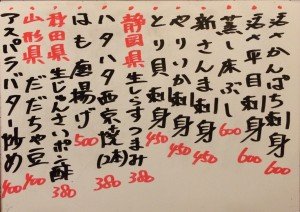 活さかんぱち刺身 600
活き平目刺身 600
蒸し床ぶし 600
新さんま刺身 450
やりいか刺身 450
とり貝刺身 450
静岡県 生しらすつまみ 380
ハタハタ西京焼(2本) 380
はも唐揚げ 500
秋田県 生じゅんさいポン酢 380
山形県 だだちゃ豆 400
アスパラバター炒め 400